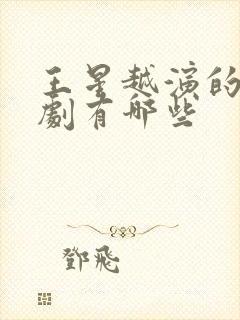 王星越演的
劇有哪些
鄧飛